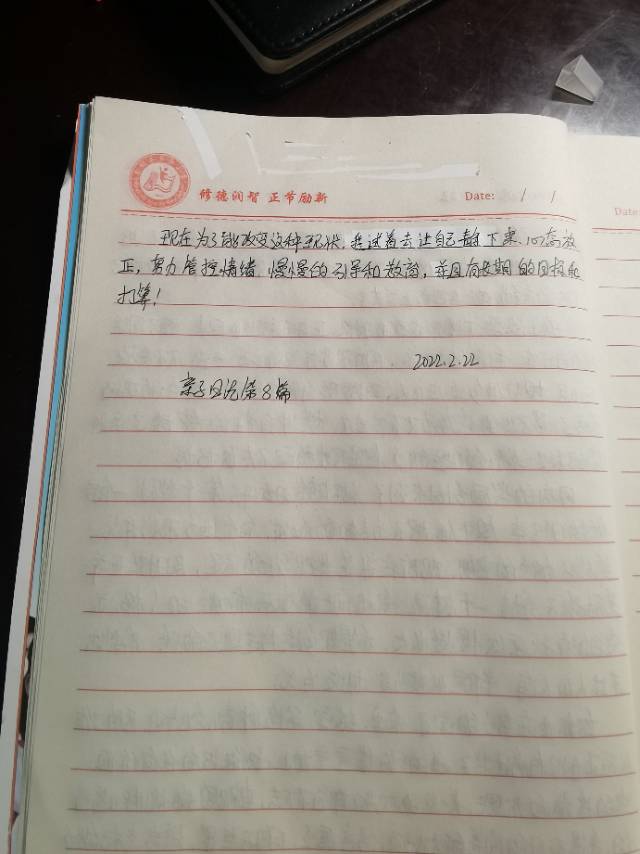 修德润智 正节励新
Date: / /
现在为了能改变这种现状,我试着去让自己静下来,心态放
正,努力管控情绪,慢慢的引导和教育,并且有长期的目标和
打算!
2022.2.22
亲子日记第8篇
Date